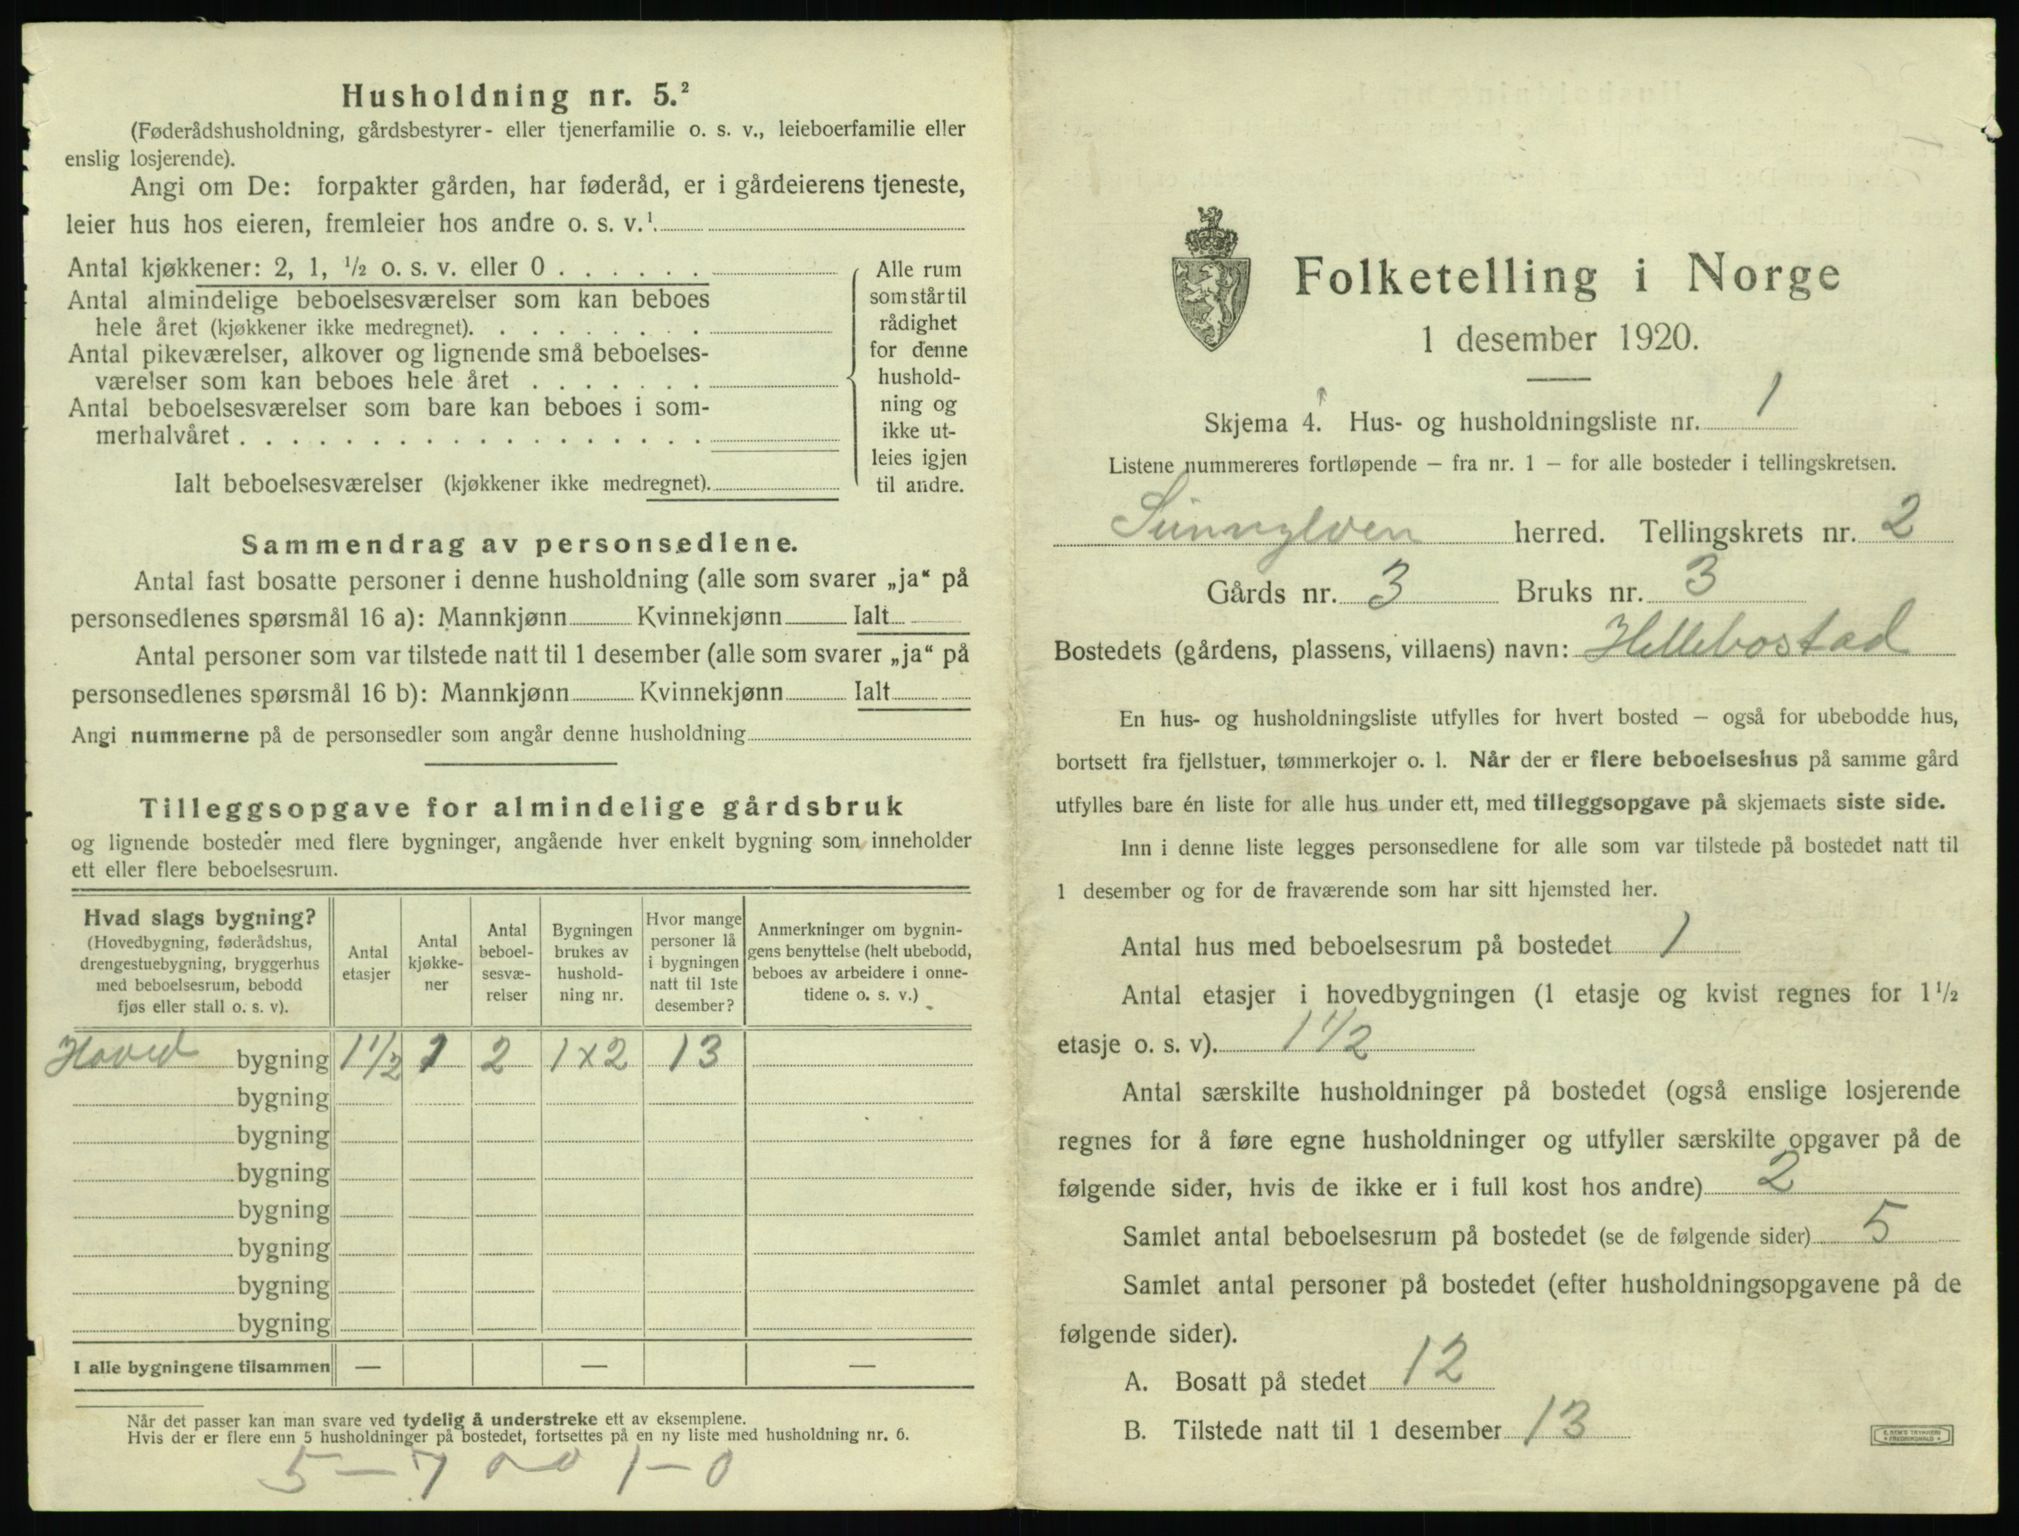 Husholdning nr. 5.²
(Føderådshusholdning, gårdsbestyrer- eller tjenerfamilie o. s. v., leieboerfamilie eller
enslig losjerende).
Angi om De: forpakter gården, har føderåd, er i gårdeierens tjeneste,
leier hus hos eieren, fremleier hos andre o. s. v.¹
Antal kjøkkener: 2, 1, ½ o. s. v. eller 0 . . . . . .
Antal almindelige beboelsesværelser som kan beboes
hele året (kjøkkener ikke medregnet). . . . . . . . .
Antal pikeværelser, alkover og lignende små beboelses-
værelser som kan beboes hele året . . . . . . .
Antal beboelsesværelser som bare kan beboes i som-
merhalvåret . . . . . . . . . . . . . . . . . .
Ialt beboelsesværelser (kjøkkener ikke medregnet).
Alle rum
som står til
rådighet
for denne
hushold-
ning og
ikke ut-
leies igjen
til andre.
Sammendrag av personsedlene.
Antal fast bosatte personer i denne husholdning (alle som svarer „ja“ på
personsedlenes spørsmål 16 a): Mannkjønn Kvinnekjønn Ialt
Antal personer som var tilstede natt til 1 desember (alle som svarer „ja“ på
personsedlenes spørsmål 16 b): Mannkjønn Kvinnekjønn Ialt
Angi nummerne på de personsedler som angår denne husholdning
Tilleggsopgave for almindelige gårdsbruk
og lignende bosteder med flere bygninger, angående hver enkelt bygning som inneholder
ett eller flere beboelsesrum.
Hvad slags bygning?
(Hovedbygning, føderådshus,
drengestuebygning, bryggerhus
med beboelsesrum, bebodd
fjøs eller stall o. s. v).
Antal
etasjer
Antal
kjøkke-
ner
Antal
beboel-
sesvæ-
relser
Bygningen
brukes av
hushold-
ning nr.
Hvor mange
personer lå
i bygningen
natt til 1ste
desember?
Anmerkninger om bygnin-
gens benyttelse (helt ubebodd,
beboes av arbeidere i onne-
tidene o. s. v.)
Hoved bygning 1½ 1 2 1x2 13
bygning
bygning
bygning
bygning
bygning
bygning
bygning
I alle bygningene tilsammen — — —
Når det passer kan man svare ved tydelig å understreke ett av eksemplene.
Hvis der er flere enn 5 husholdninger på bostedet, fortsettes på en ny liste med husholdning nr. 6.
5 – 7 0 0 1 – 0
Folketelling i Norge
1 desember 1920.
Skjema 4. Hus- og husholdningsliste nr. 1
Listene nummereres fortløpende – fra nr. 1 – for alle bosteder i tellingskretsen.
Sunnylven herred. Tellingskrets nr. 2
Gårds nr. 3 Bruks nr. 3
Bostedets (gårdens, plassens, villaens) navn: Hellebostad
En hus- og husholdningsliste utfylles for hvert bosted – også for ubebodde hus,
bortsett fra fjellstuer, tømmerkojer o. l. Når der er flere beboelseshus på samme gård
utfylles bare én liste for alle hus under ett, med tilleggsopgave på skjemaets siste side.
Inn i denne liste legges personsedlene for alle som var tilstede på bostedet natt til
1 desember og for de fraværende som har sitt hjemsted her.
Antal hus med beboelsesrum på bostedet 1
Antal etasjer i hovedbygningen (1 etasje og kvist regnes for 1½
etasje o. s. v). 1½
Antal særskilte husholdninger på bostedet (også enslige losjerende
regnes for å føre egne husholdninger og utfyller særskilte opgaver på de
følgende sider, hvis de ikke er i full kost hos andre) 2
Samlet antal beboelsesrum på bostedet (se de følgende sider) 5
Samlet antal personer på bostedet (efter husholdningsopgavene på de
følgende sider).
A. Bosatt på stedet 12
B. Tilstede natt til 1 desember 13